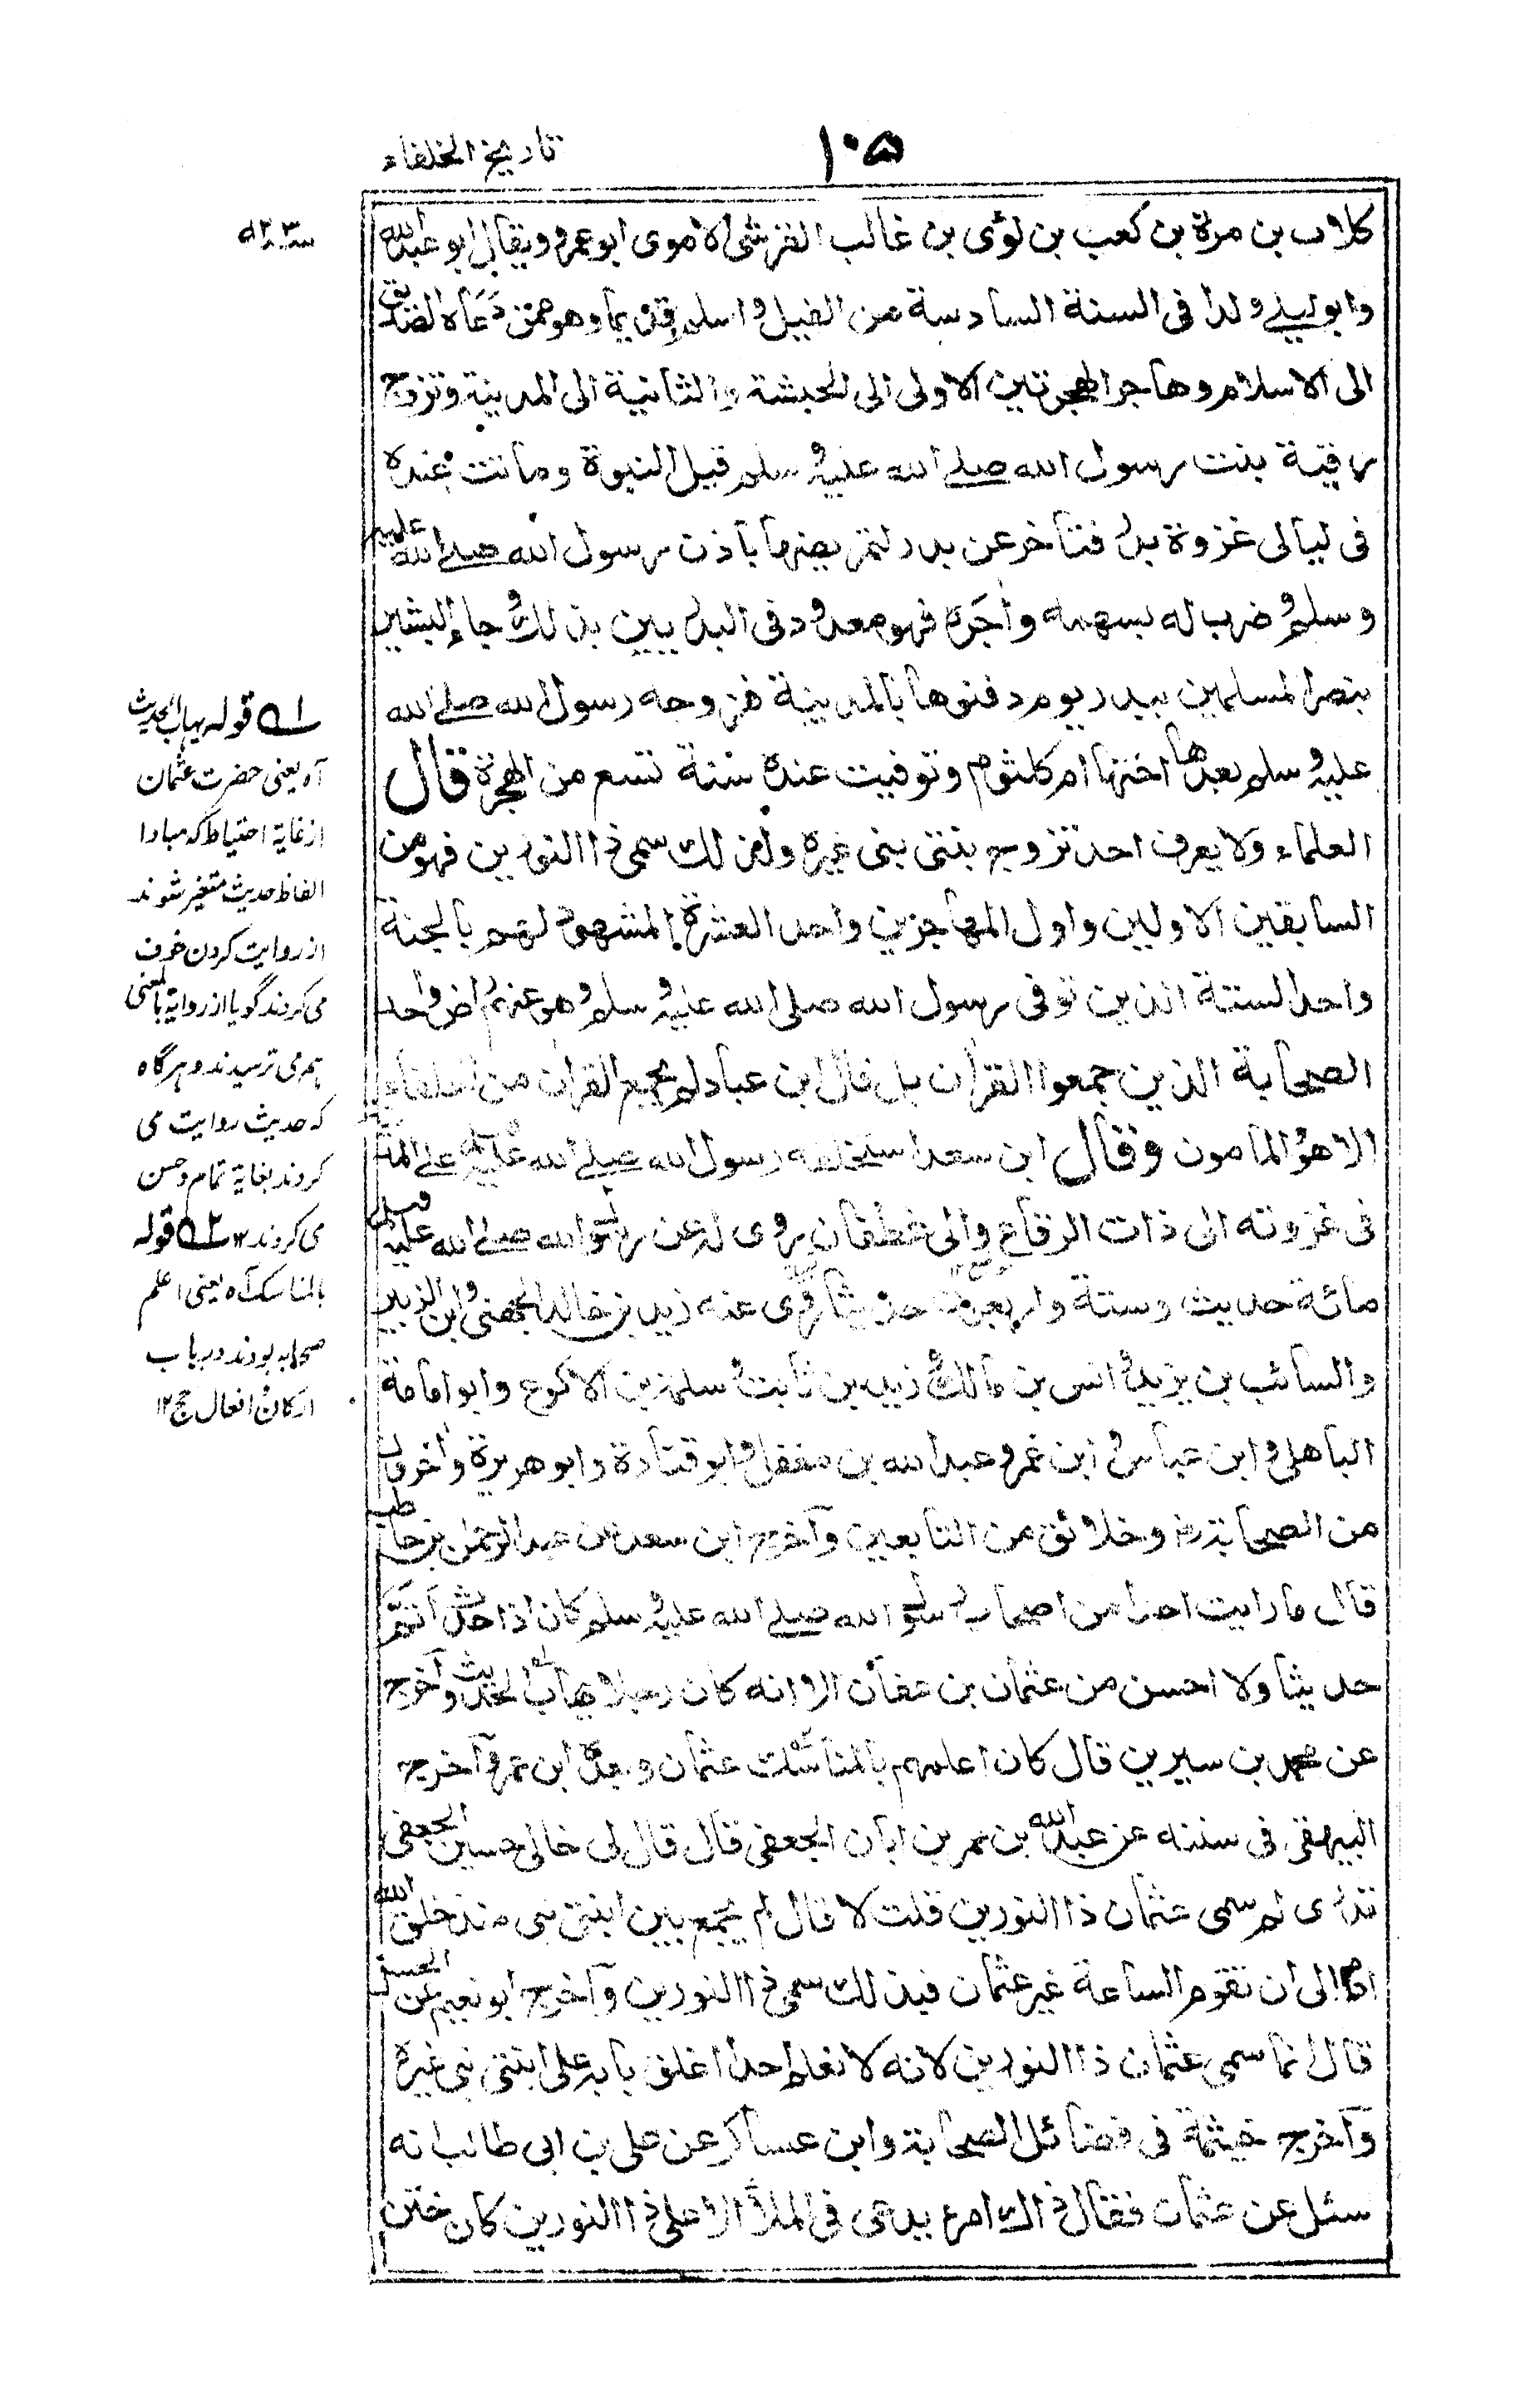 ١٠٥
تاريخ الخلفاء
كلاب بن مرة بن كعب بن لؤى بن غالب القرشى الاموى ابو عمرو ويقال ابو عبد الله
وابو ليلے ولد فى السنة السادسة من الفيل واسلم قديما وهو ممن دعاه الصديق
الى الاسلام وهاجر الهجرتين الاولى الى الحبشة والثانية الى المدينة وتزوج
رقية بنت رسول الله صلے الله عليه وسلم قبل النبوة وماتت عنده
فى ليالى غزوة بدر فتأخر عن بدر لتمريضها باذن رسول الله صلے الله عليه
وسلم وضرب له بسهمه واجره فهو معدود فى البدريين بذلك وجاء البشير
بنصر المسلمين ببدر يوم دفنوها بالمدينة فزوجه رسول الله صلے الله
عليه وسلم بعدها اختها ام كلثوم وتوفيت عنده سنة تسع من الهجرة قال
العلماء ولا يعرف احد تزوج بنتى نبى غيره ولذلك سمى ذا النورين فهو من
السابقين الاولين واول المهاجرين واحد العشرة المشهود لهم بالجنة
واحد الستة الذين توفى رسول الله صلى الله عليه وسلم وهو عنهم راض واحد
الصحابة الذين جمعوا القرآن بل قال ابن عباد لم يجمع القرآن من الخلفاء
الا هو والمامون وقال ابن سعد استخلفه رسول الله صلے الله عليه وسلم علے المدينة
فى غزوته الى ذات الرقاع والى غطفان روى له عن رسول الله صلے الله عليه وسلم
مائة حديث وستة واربعون حديثا روى عنه زيد بن خالد الجهنى وابن الزبير
والسائب بن يزيد وانس بن مالك وزيد بن ثابت وسلمة بن الاكوع وابو امامة
الباهلى وابن عباس وابن عمر وعبد الله بن مغفل وابو قتادة وابو هريرة وآخرون
من الصحابة رض وخلائق من التابعين وآخرج ابن سعد عن عبد الرحمن بن حاطب
قال ما رايت احدا من اصحاب رسول الله صلے الله عليه وسلم كان اذا حدث اتم
حديثا ولا احسن من عثمان بن عفان الا انه كان رجلا يهاب الحديث وآخرج
عن محمد بن سيرين قال كان اعلمهم بالمناسك عثمان وبعده ابن عمر وآخرج
البيهقى فى سننه عن عبد الله بن عمر بن ابان الجعفى قال قال لى خالى حسين الجعفى
تدرى لم سمى عثمان ذا النورين قلت لا قال لم يجمع بين ابنتى نبى منذ خلق الله
آدم الى ان تقوم الساعة غير عثمان فبذلك سمى ذا النورين وآخرج ابو نعيم عن الحسن
قال انما سمى عثمان ذا النورين لانه لا نعلم احدا اغلق بابه على ابنتى نبى غيره
وآخرج خيثمة فى فضائل الصحابة وابن عساكر عن على بن ابى طالب انه
سئل عن عثمان فقال ذاك امرء يدعى فى الملأ الاعلى ذا النورين كان ختن
سنة ٢٣ ه
١ ه قوله يهاب الحديث
آه يعنى حضرت عثمان
از غاية احتياط كه مبادا
الفاظ حديث متغير شوند
از روايت كردن خوف
مى كردند گويا از رواية بالمعنى
ہم مى ترسيدند و ہر گاه
كه حديث روايت مى
كردند بغاية تمام وحسن
مى كردند ١٢ ٢ ه قوله
بالمناسك آه يعنى اعلم
صحابه بودند در باب
اركان افعال حج ١٢